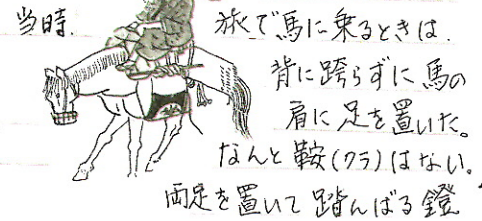 当時.
旅で馬に乗るときは.
背に跨らずに馬の
肩に足を置いた。
なんと鞍(クラ)はない。
両足を置いて踏んばる鐙